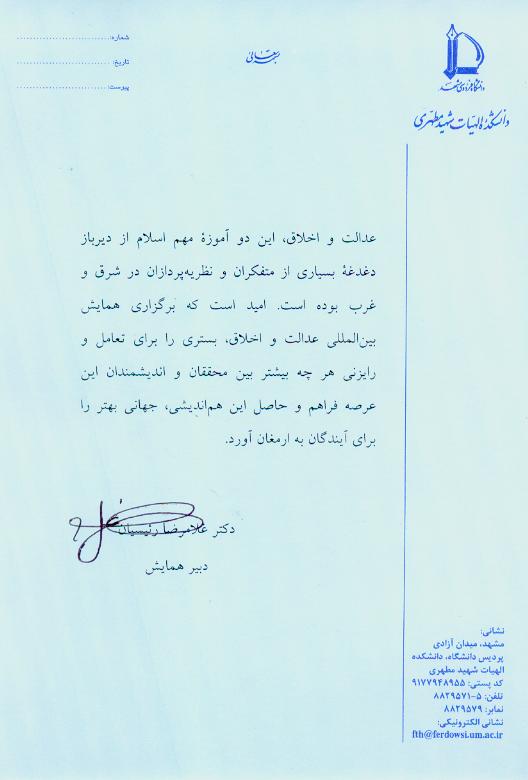 بسمه تعالی
شماره:
تاریخ:
پیوست:
دانشگاه فردوسی مشهد
دانشکدهٔ الهیات شهید مطهری
عدالت و اخلاق، این دو آموزهٔ مهم اسلام از دیرباز
دغدغهٔ بسیاری از متفکران و نظریه‌پردازان در شرق و
غرب بوده است. امید است که برگزاری همایش
بین‌المللی عدالت و اخلاق، بستری را برای تعامل و
رایزنی هر چه بیشتر بین محققان و اندیشمندان این
عرصه فراهم و حاصل این هم‌اندیشی، جهانی بهتر را
برای آیندگان به ارمغان آورد.
دکتر غلامرضا رئیسیان
دبیر همایش
نشانی:
مشهد، میدان آزادی
پردیس دانشگاه، دانشکده
الهیات شهید مطهری
کد پستی: ۹۱۷۷۹۴۸۹۵۵
تلفن: ۵-۸۸۲۹۵۷۱
نمابر: ۸۸۲۹۵۷۹
نشانی الکترونیکی:
fth@ferdowsi.um.ac.ir